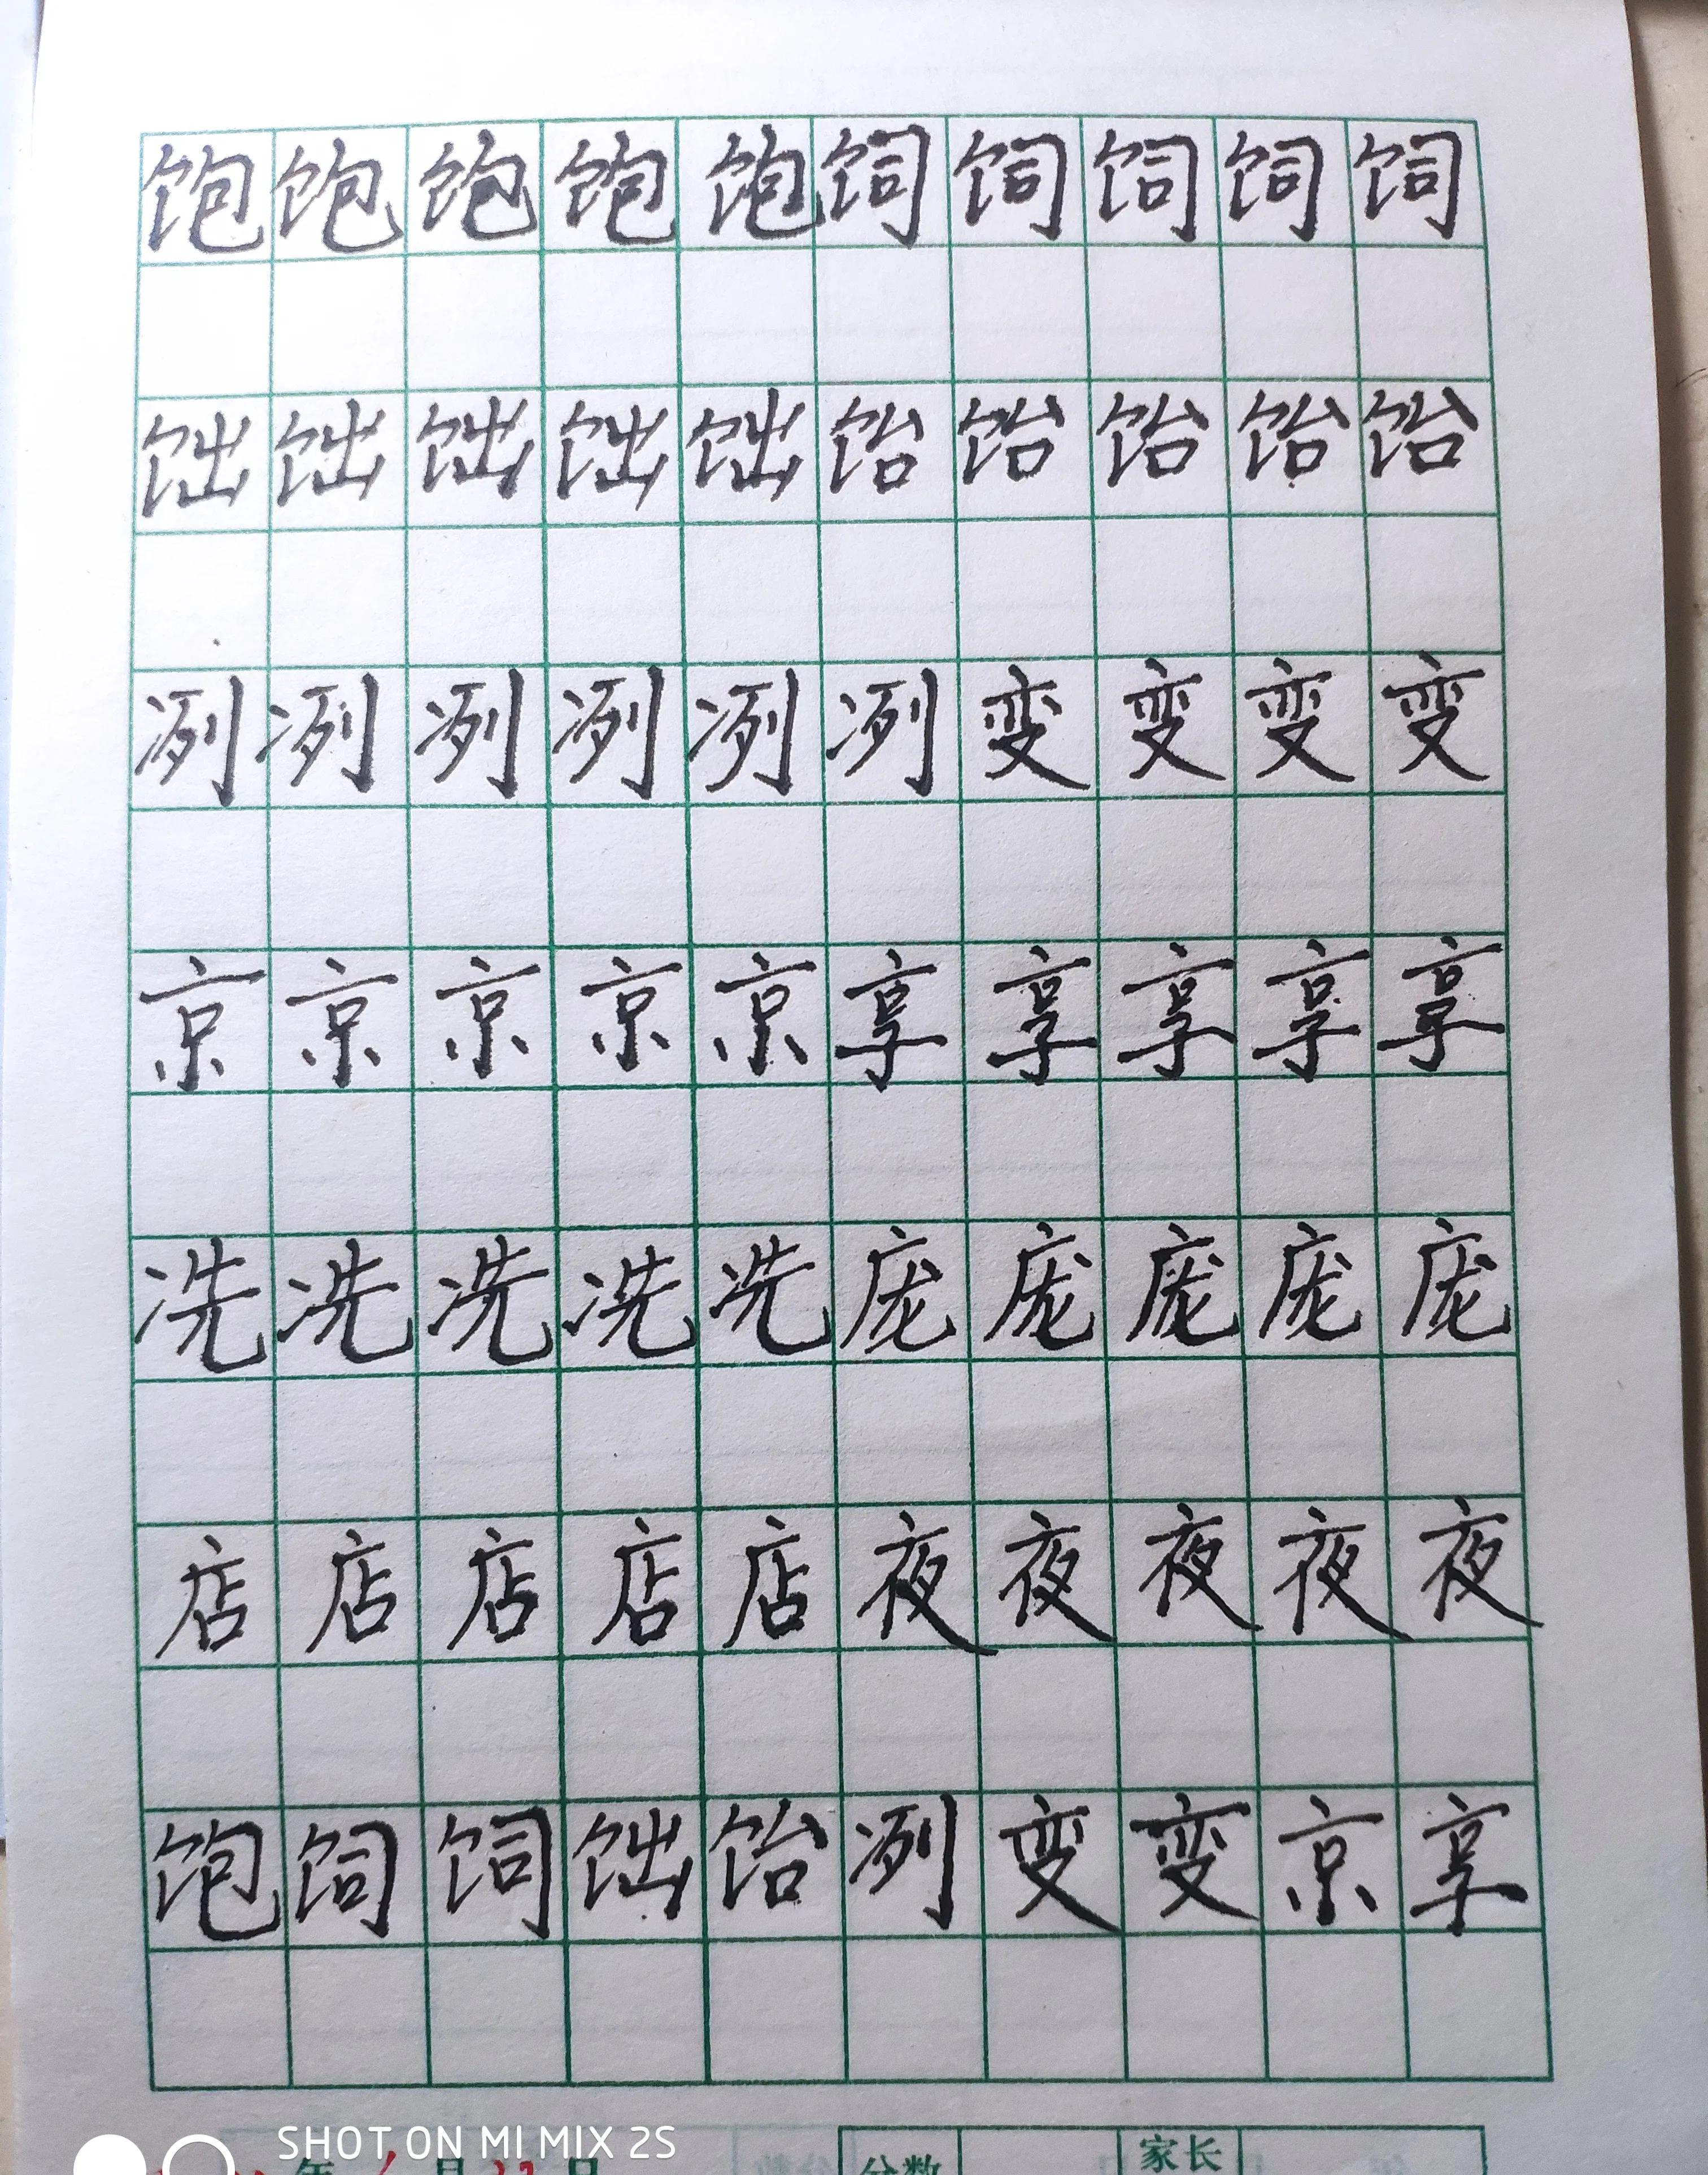 饱饱饱饱饱饲饲饲饲饲
饳饳饳饳饳饴饴饴饴饴
冽冽冽冽冽冽变变变变
京京京京京享享享享享
冼冼冼冼冼庞庞庞庞庞
店店店店店夜夜夜夜夜
饱饲饲饳饴冽变变京享
SHOT ON MI MIX 2S
年 月 日 分数 家长